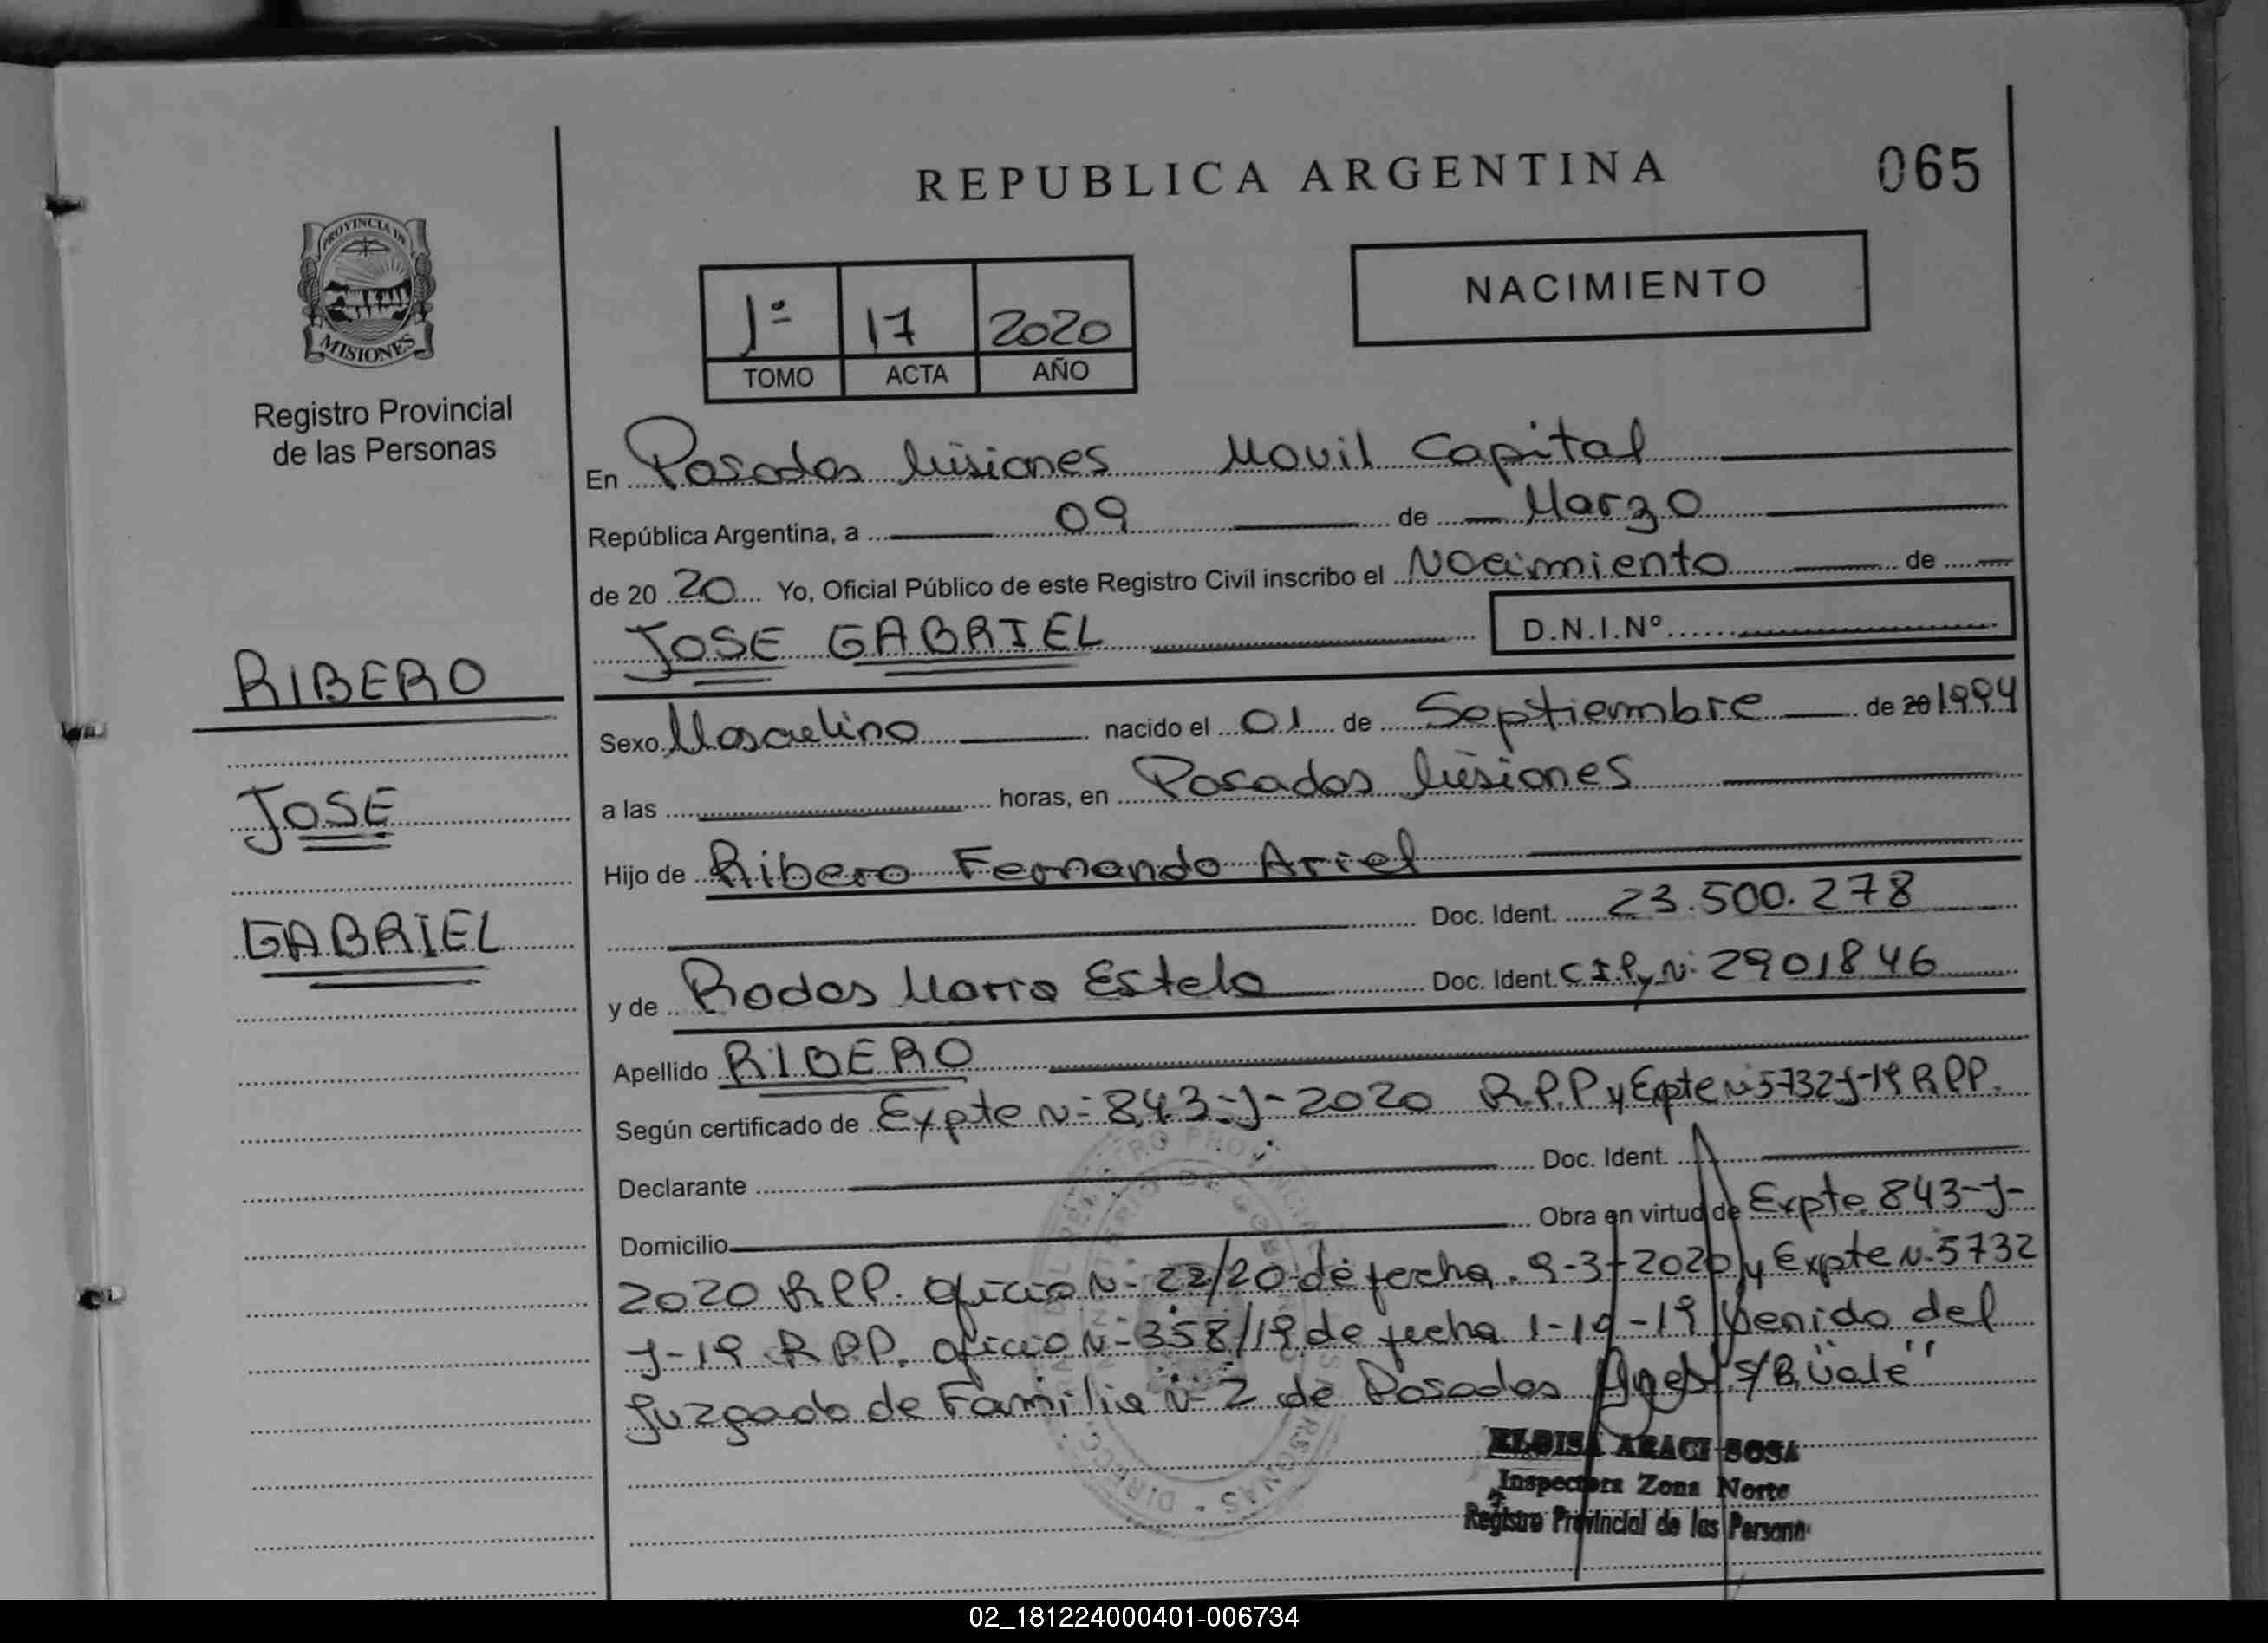 REPUBLICA ARGENTINA
065
PROVINCIA DE
MISIONES
Registro Provincial
de las Personas
1º 17 2020
TOMO ACTA AÑO
NACIMIENTO
En Posadas Misiones Movil Capital
República Argentina, a 09 de Marzo
de 20 20 Yo, Oficial Público de este Registro Civil inscribo el Nacimiento de
JOSE GABRIEL D.N.I.Nº
RIBERO
JOSE
GABRIEL
Sexo Masculino nacido el 01 de Septiembre de 20 1994
a las horas, en Posadas Misiones
Hijo de Ribero Fernando Ariel
Doc. Ident. 23.500.278
y de Rodas Maria Estela Doc. Ident. C.I.P. y Nº 2901846
Apellido RIBERO
Según certificado de Expte Nº 843-J-2020 R.P.P y Expte Nº 5732-J-19 RPP.
Declarante Doc. Ident.
Domicilio Obra en virtud de Expte 843-J-
2020 RPP. Oficio Nº 22/20 de fecha 9-3-2020 y Expte Nº 5732
J-19 RPP. Oficio Nº 358/19 de fecha 1-10-19 Venido del
Juzgado de Familia Nº 2 de Posadas S/R "Vale"
ELOISA ARACI SOSA
Inspectora Zona Norte
Registro Provincial de las Personas
02_181224000401-006734